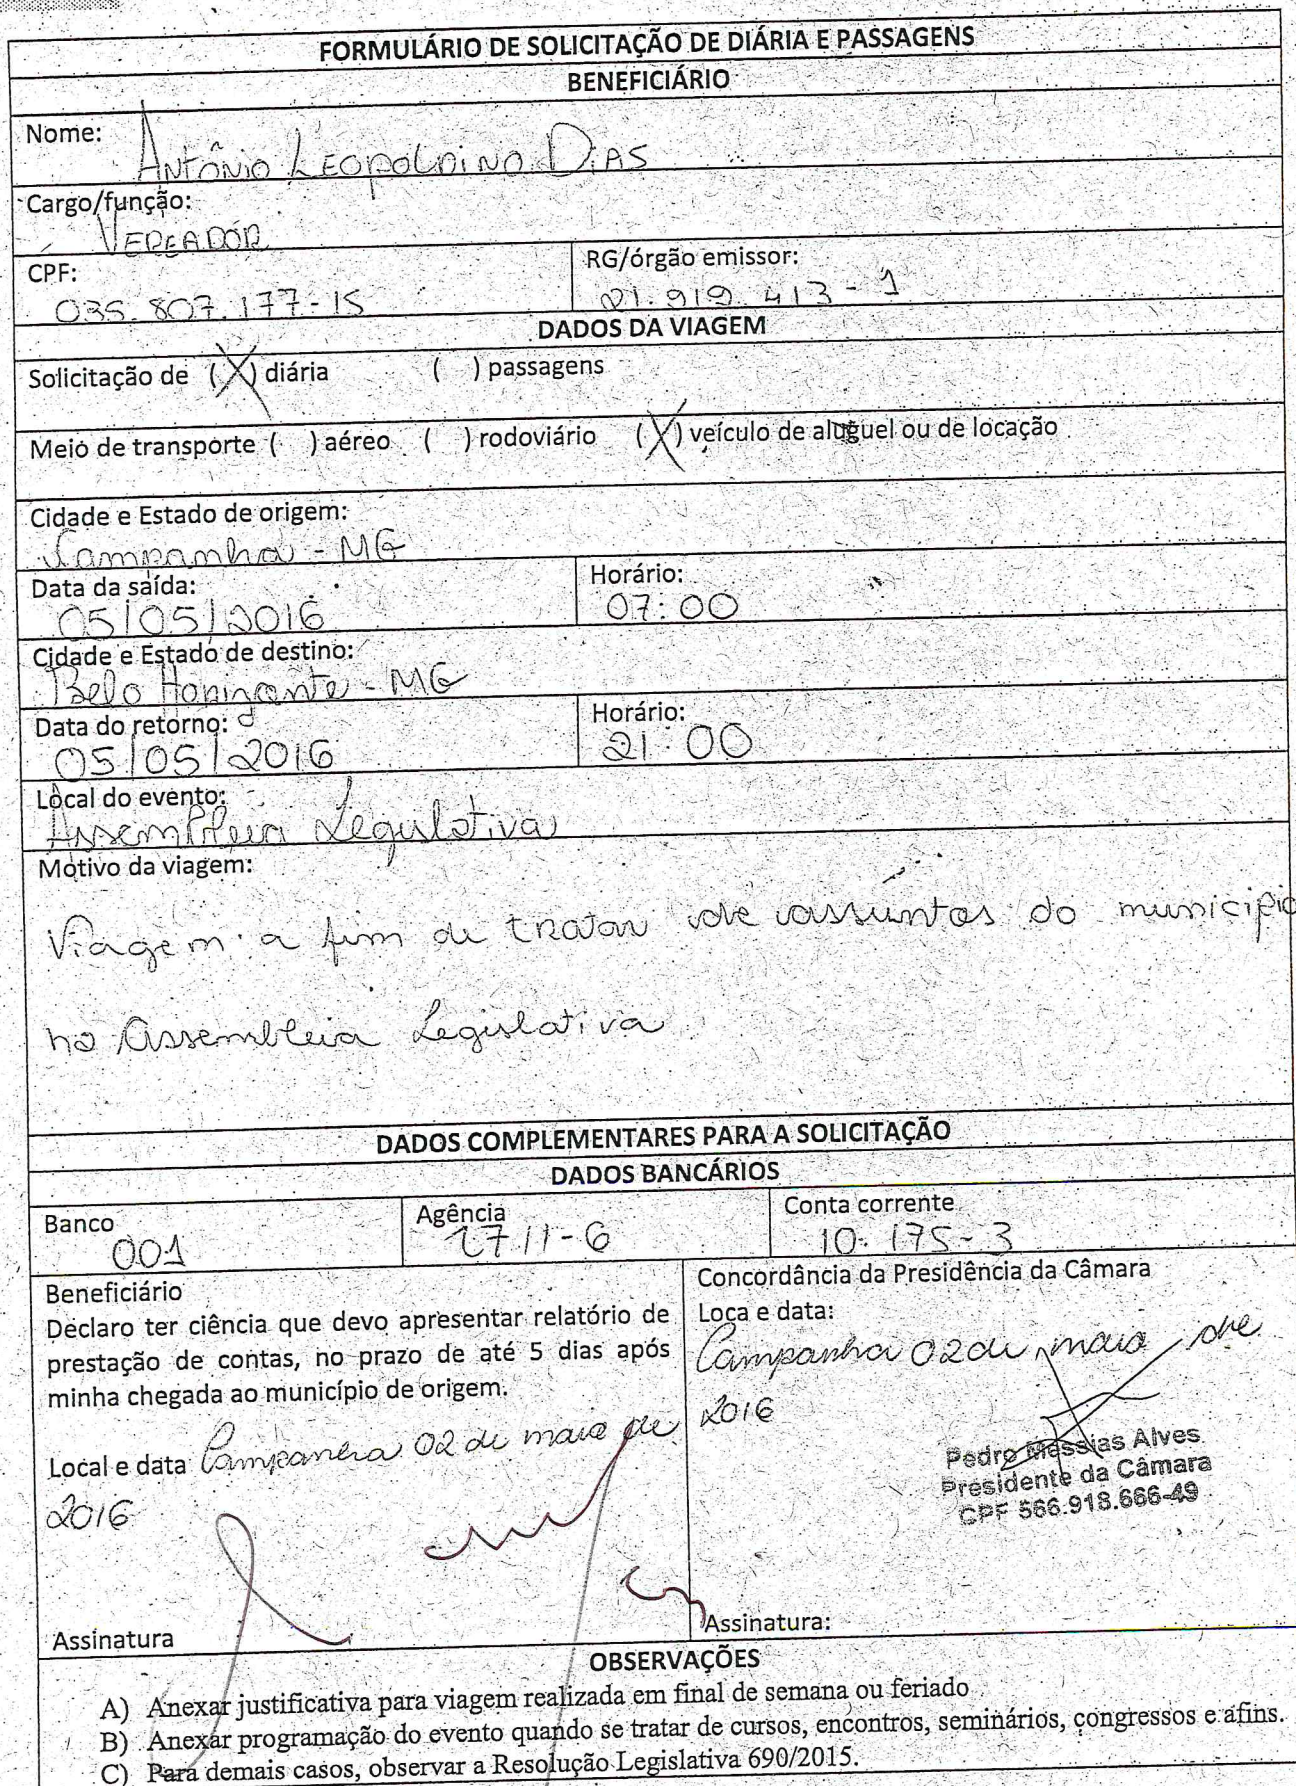 FORMULÁRIO DE SOLICITAÇÃO DE DIÁRIA E PASSAGENS
BENEFICIÁRIO
Nome: ANTÔNIO LEOPOLDINO DIAS
Cargo/função:
VEREADOR
CPF: 035.807.177-15
RG/órgão emissor: 21.919.413-1
DADOS DA VIAGEM
Solicitação de (X) diária ( ) passagens
Meio de transporte ( ) aéreo ( ) rodoviário (X) veículo de aluguel ou de locação
Cidade e Estado de origem:
Campanha - MG
Data da saída: 05/05/2016
Horário: 07:00
Cidade e Estado de destino:
Belo Horizonte - MG
Data do retorno: 05/05/2016
Horário: 21:00
Local do evento:
Assembleia Legislativa
Motivo da viagem:
Viagem a fim de tratar de assuntos do município
na Assembleia Legislativa
DADOS COMPLEMENTARES PARA A SOLICITAÇÃO
DADOS BANCÁRIOS
Banco 001
Agência 1711-6
Conta corrente 10.175-3
Beneficiário
Declaro ter ciência que devo apresentar relatório de
prestação de contas, no prazo de até 5 dias após
minha chegada ao município de origem.
Local e data Campanha 02 de maio de
2016
Assinatura
Concordância da Presidência da Câmara
Loca e data:
Campanha 02 de maio de
2016
Pedro Messias Alves
Presidente da Câmara
CPF 566.918.666-49
Assinatura:
OBSERVAÇÕES
A) Anexar justificativa para viagem realizada em final de semana ou feriado
B) Anexar programação do evento quando se tratar de cursos, encontros, seminários, congressos e afins.
C) Para demais casos, observar a Resolução Legislativa 690/2015.